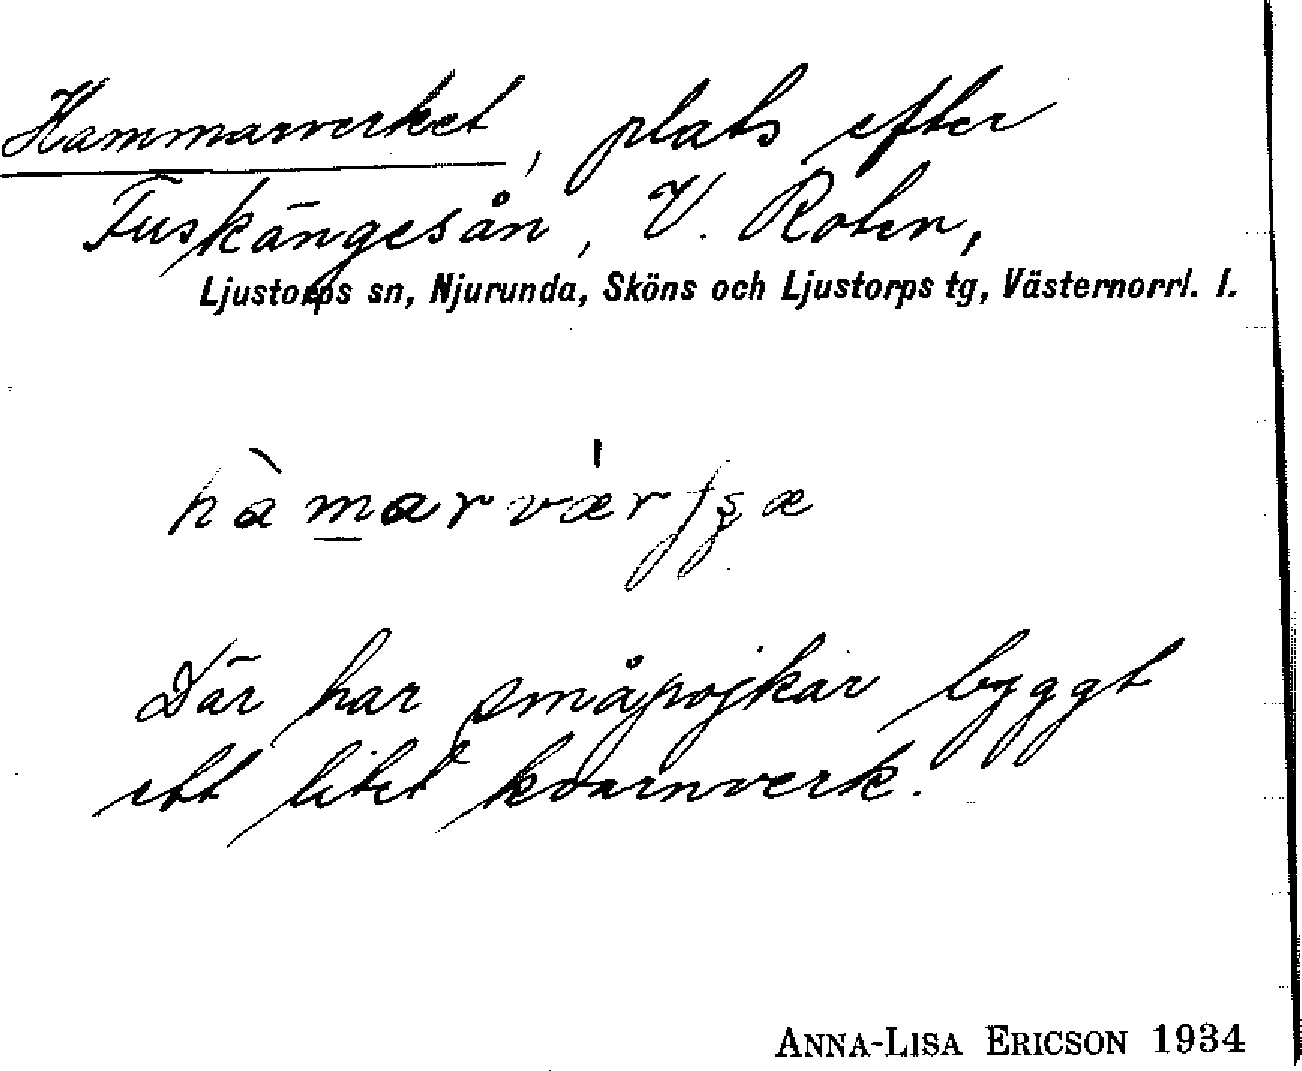 Hammarverket, plats efter
Fuskängesån, V. Roten,
Ljustorps sn, Njurunda, Sköns och Ljustorps tg, Västernorrl. l.
Där har småpojkar byggt
ett litet kvarnverk.
ANNA-LISA ERICSON 1934